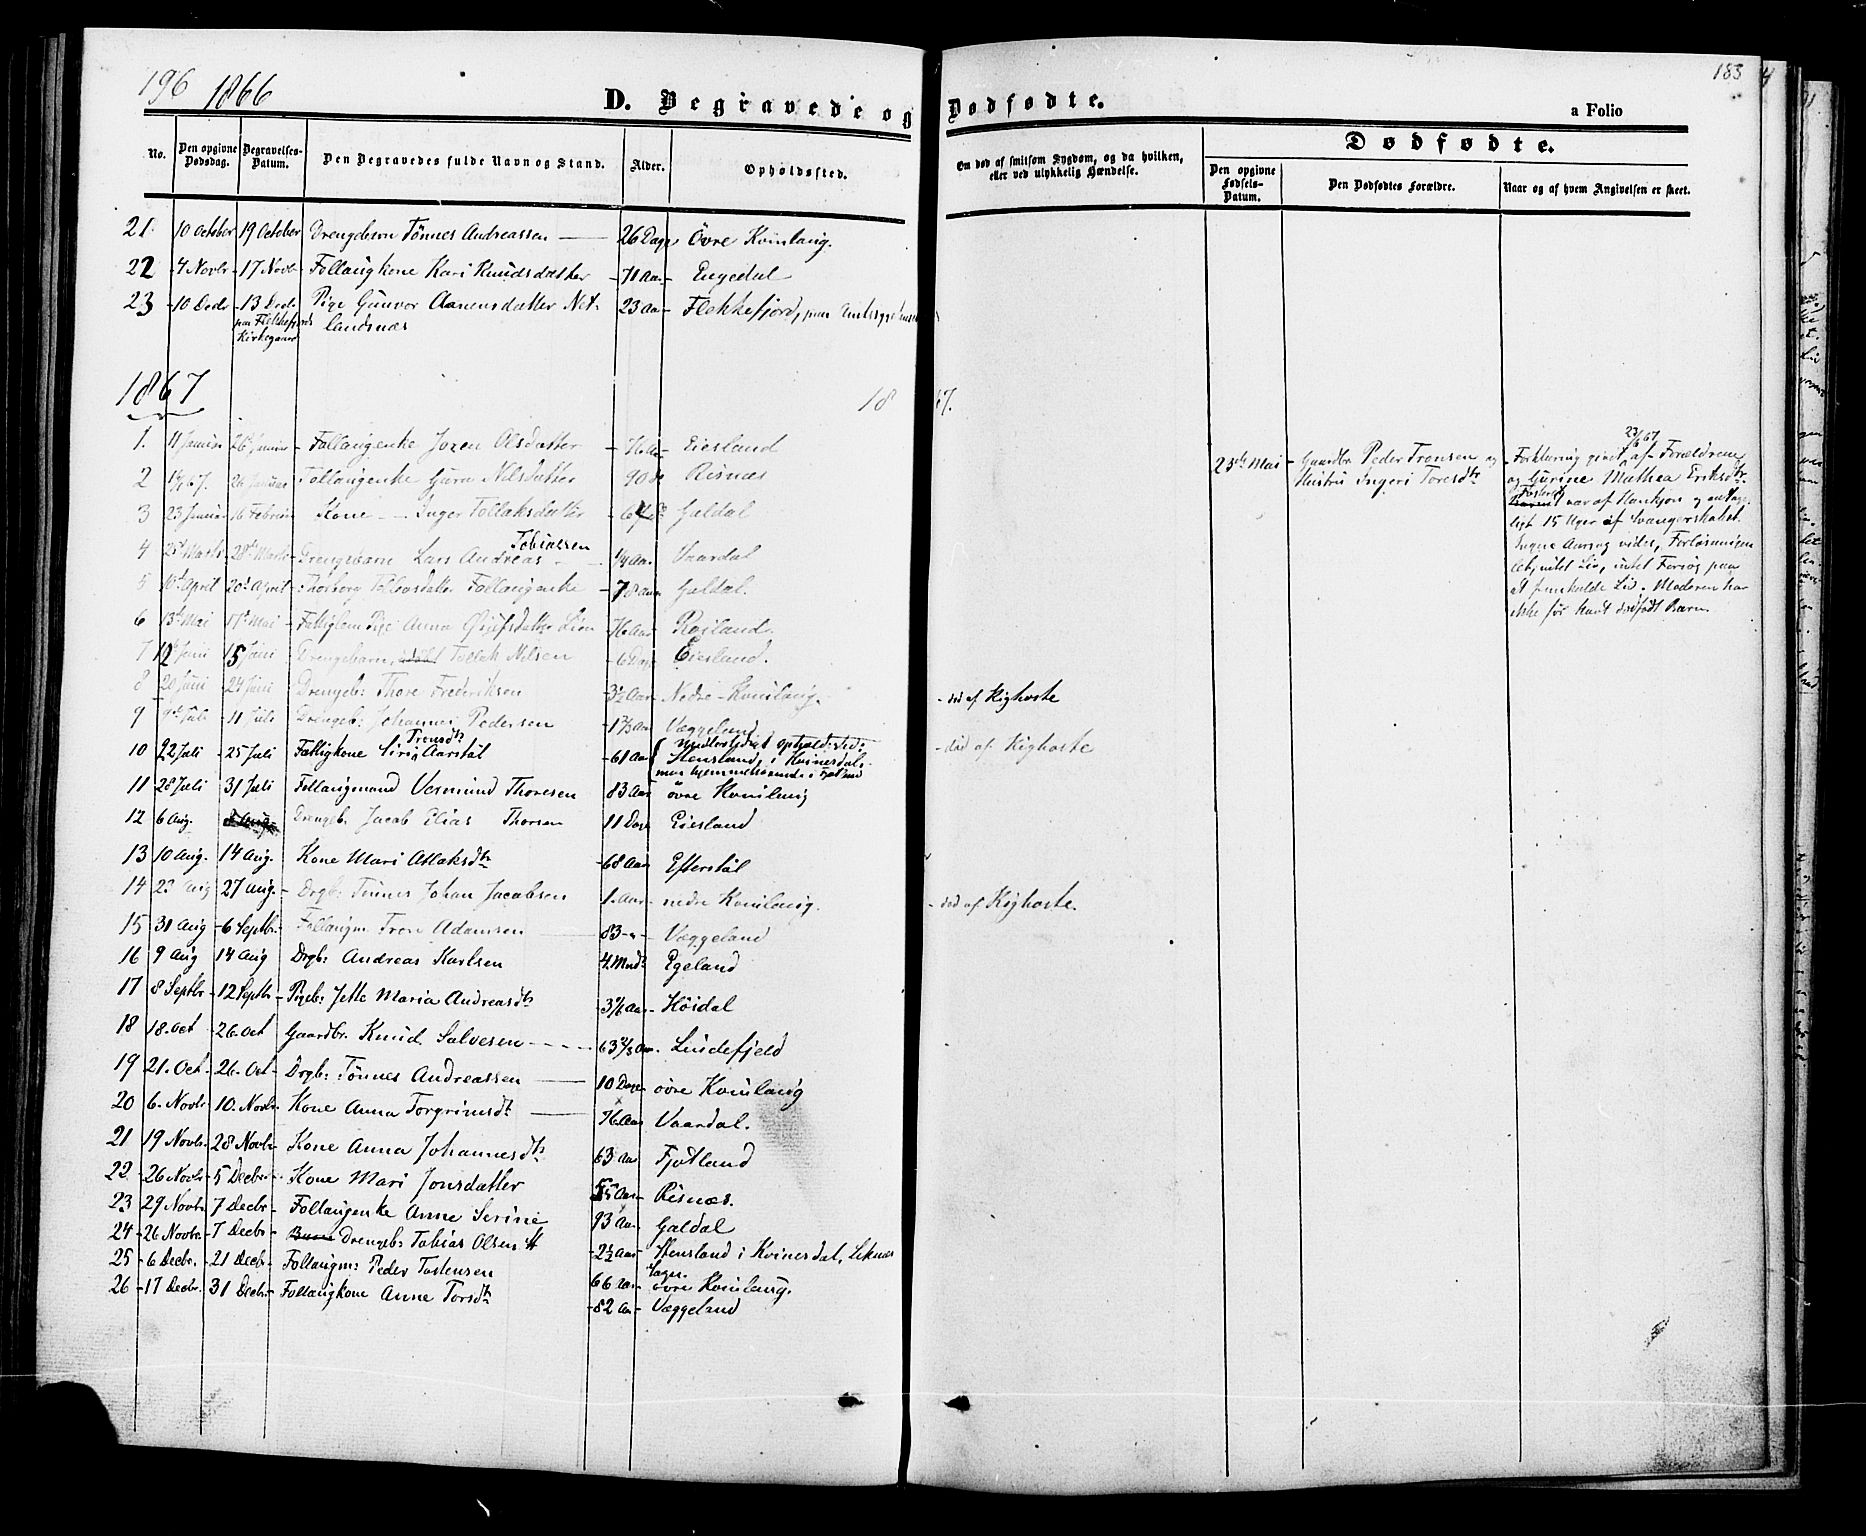 196 1866
D. Begravede og Dødfødte.
183
a Folio
No.
Den opgivne Dødsdag.
Begravelses-Datum.
Den Begravedes fulde Navn og Stand.
Alder.
Opholdssted.
Om død af smitsom Sygdom, og da hvilken, eller ved ulykkelig Hændelse.
Dødfødte.
Den opgivne Fødsels-Datum.
Den Dødfødtes Forældre.
Naar og af hvem Angivelsen er skeet.
21. 10 October 19 October Drengebarn Tønnes Andreassen — 26 Dage Övre Kvinlaug.
22 4 Novbr 17 Novbr Follaugkone Kari Knudsdatter 71 Aar Eegedal
23 10 Decbr 13 Decbr. Pige Gunvor Aanensdatter Net- 23 Aar Flekkefjord, paa
paa Flekkefjords Kirkegaard landsnæs
1867 1867.
1. 11 Januar 26 Januar Follaugenke Joren Olsdatter 76 Aar Eiesland
2 67. 26 Januar Follaugenke Guru Nilsdatter 90 Risnæs
3 23 Januar 16 Februar Kone — Inger Tollaksdatter Galdal
Tobiassen
4 25 Marts 28 Marts Drengebarn Lars Andreas 1/4 Aar Vaardal
5 10 April 20 April Thorborg Follaugenke 78 Aar Galdal.
6 13de Mai 17de Mai Fattiglem Pige Anna 76 Aar Røiland.
7 12 Juni 15 Juni Drengebarn, Tollak Nilsen 6 Dage Eiesland.
8 20 Juni 24 Juni Drengeb: Thore Frederiksen 3½ Aar Nedre-Kvinlaug. - død af Kighoste
9 9de Juli 11 Juli Drengeb: Johannes Pedersen 1 2/3 Aar Væggeland
Tronsdtr
10 22 Juli 25 Juli Fattigkone Siri Aarstöl 61 Aar { midlertidigt opholdssted: - død af: Kighoste
Stensland, i Kvinesdal,
men hjemmehørende i Fjotland
11 28 Juli 31 Juli Follaugmand Vermund Thoresen 83 Aar övre Kvinlaug
12 6 Aug. Drengeb: Jacob Elias Thorsen 11 Dage Eiesland
13 10 Aug. 14 Aug. Kone Mari Atlaksdtr 68 Aar Efterstöl
14 23 Aug 27 Aug. Drgb: Tönnes Johan Jacobsen 1. Aar nedre Kvinlaug. - død af Kighoste.
15 31 Aug 6 Septbr. Follaugm: Tron Adamsen 83 - " - Væggeland
16 9 Aug 14 Aug Drgb: Andreas Karlsen 4. Mdr Egeland
17 8 Septbr 12 Septbr Pigeb: Jette Maria Andreasdtr 3 1/6 Aar Höidal
18 18. Oct 26. Oct Gaardbr. Knud Salvesen 63 2/3 Aar Lindefjeld
19 21. Oct. 26. Oct. Drgb: Tönnes Andreassen — 10 Dage övre Kvinlaug
20 6. Novbr 10. Novbr. Kone Anna Torgrimsdtr — 76 Aar Vaardal.
21 19 Novbr. 28 Novbr Kone Anna Johannesdtr 63 Aar Fjotland
22. 26 Novbr 5 Decbr Kone Mari Jonsdatter 55 Aar Risnæs.
23 29 Novbr. 7 Decbr Follaugenke Anne Serine 93 Aar Galdal
24 26 Novbr. 7 Decbr Drengeb: Tobias Olsen 2½ Aar Stensland i Kvinesdal,
25 6 Decbr. 21 Decbr. Follaugm: Peder Tostensen 66 Aar övre Kvinlaug.
26 17 Decbr. 31 Decbr. Follaugkone Anne Torsdtr 82 Aar Væggeland
23de Mai Gaardbr. Peder Tronsen og
Hustru Ingeri Toresdtr
23/6 67
Forklaring givet af Forældrene
og Gurine Mathea Eriksdtr.
Fosteret var af Hankjøn og
15 Uger af Svangerskabet.
Ingen Aarsag vides, Forløsningen
intet Liv, intet Forsøg paa
at fremkalde Liv. Moderen har
ikke før havt dødfødt Barn.